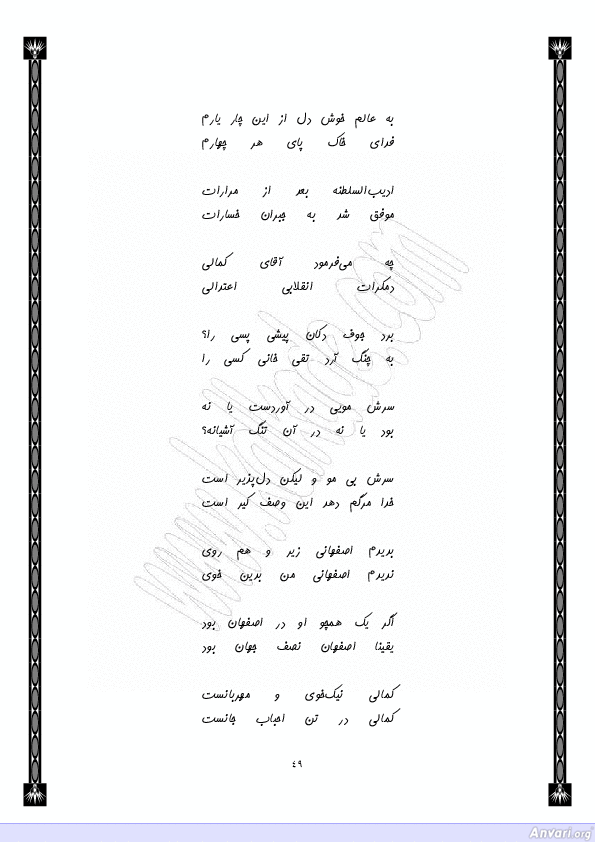 به عالم خوش دل از این چار یارم
فدای خاک پای هر چهارم
ادیب‌السلطنه بعد از مرارات
موفق شد به جبران خسارات
چه می‌فرمود آقای کمالی
دمکرات انقلابی اعتدالی
برد جوف دکان پیشی پسی را؟
به چنگ آرد تقی خانی کسی را
سرش مویی در آوردست یا نه
بود یا نه در آن تنگ آشیانه؟
سرش بی مو و لیکن دل‌پذیر است
خدا مرگم دهد این وصف کیر است
بدیدم اصفهانی زیر و هم روی
ندیدم اصفهانی من بدین خوی
اگر یک همچو او در اصفهان بود
یقینا اصفهان نصف جهان بود
کمالی نیک‌خوی و مهربانست
کمالی در تن احباب جانست
۴۹
Anvari.org